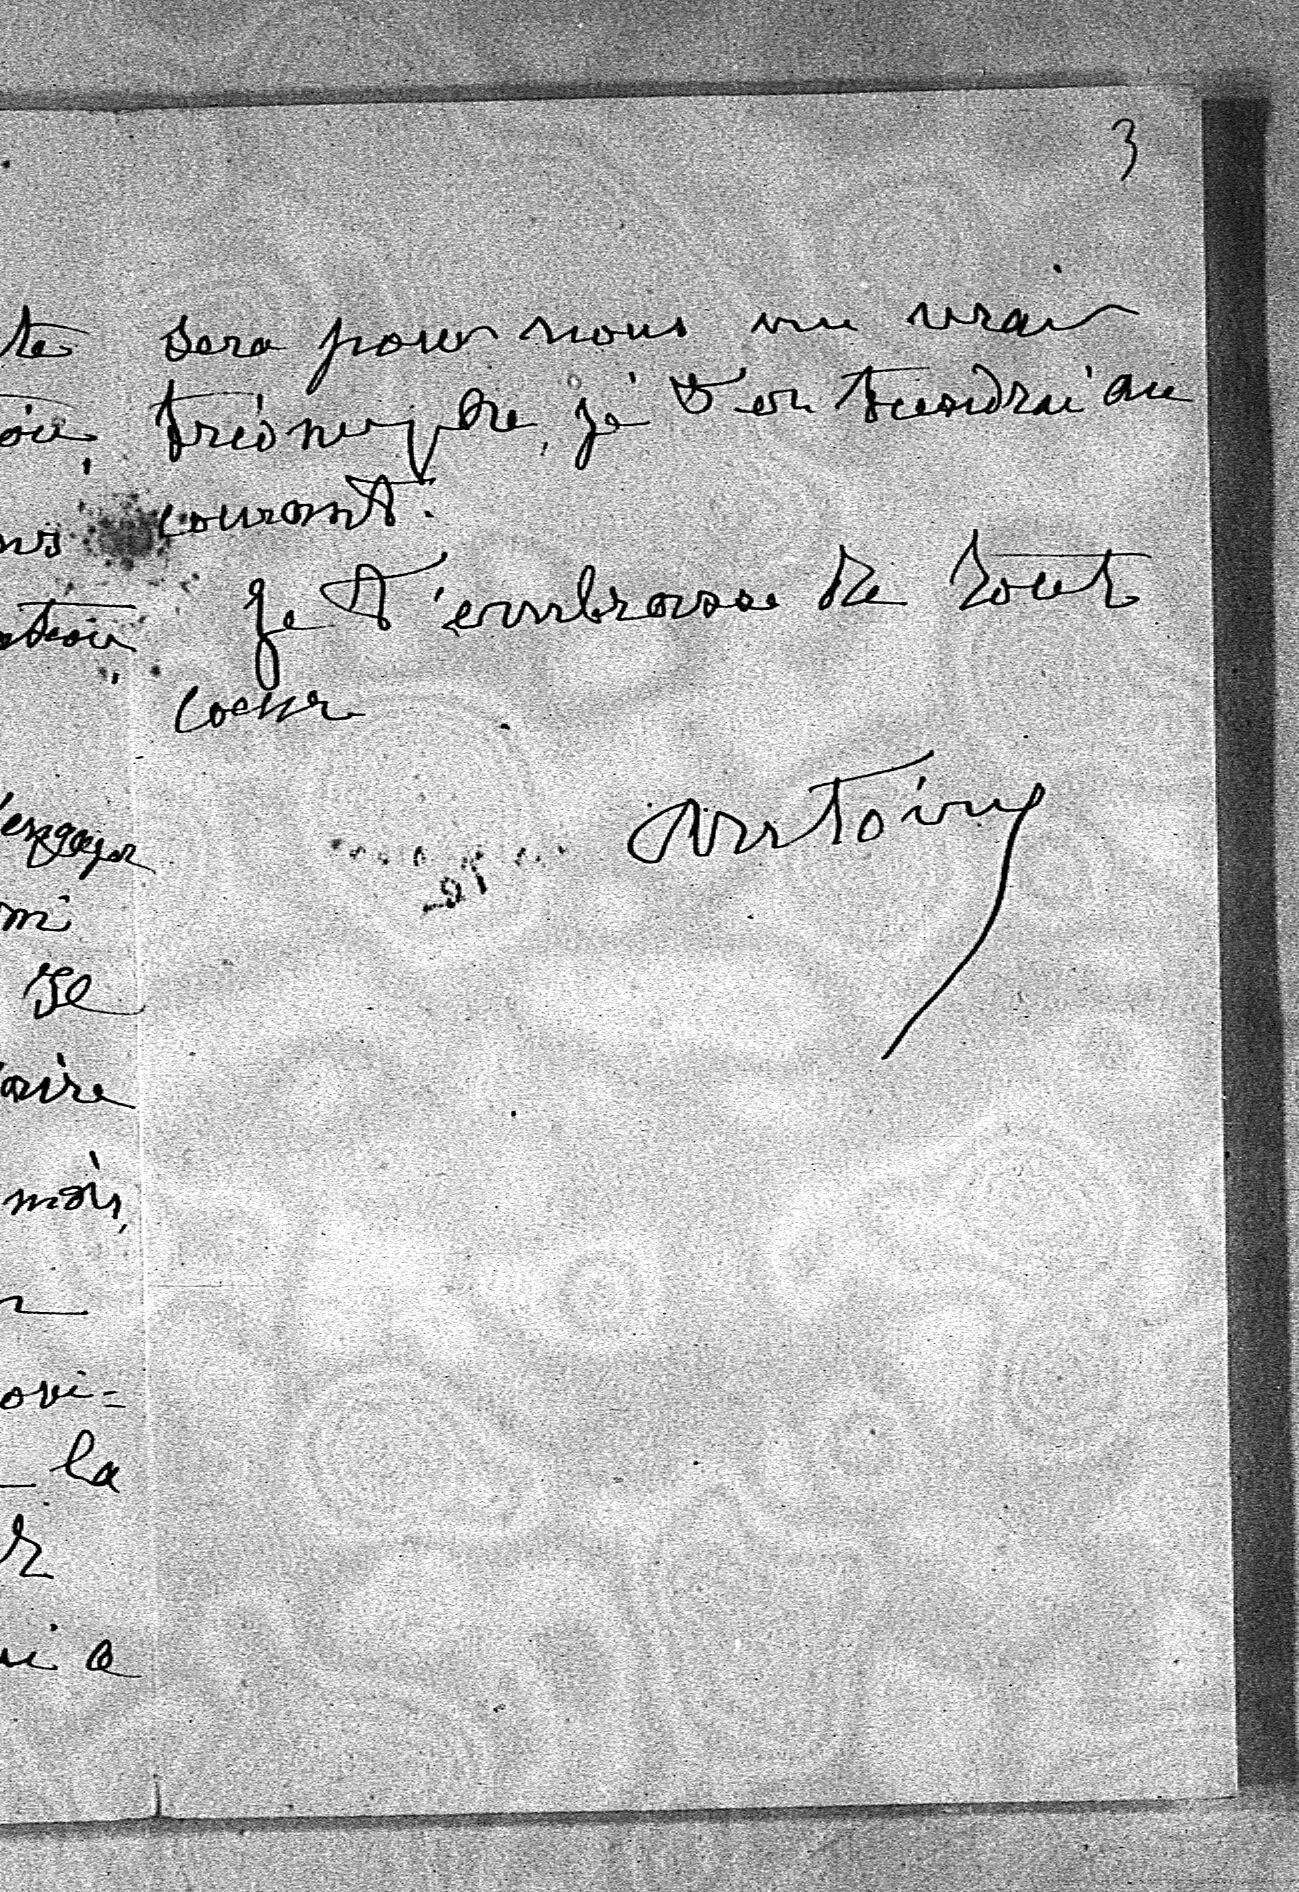 3
sera pour nous un vrai
triomphe, je t'en tiendrai au
courant.
Je t'embrasse de tout
coeur
Antoine
te
'engager
Se
aire
mois,
ovi-
la